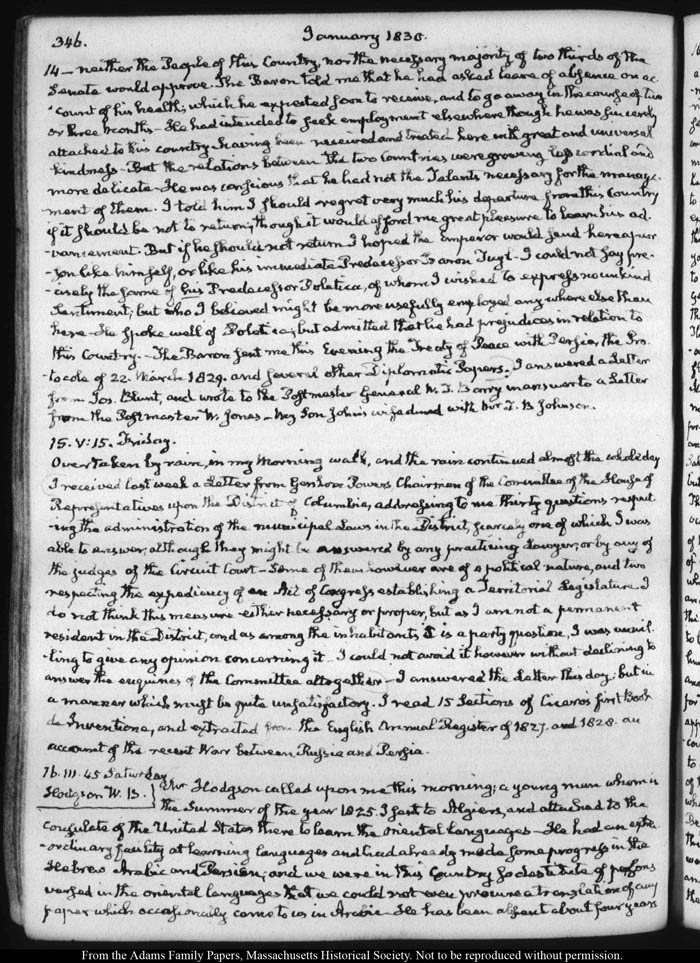 346.
January 1830.
14 — neither the People of this Country, nor the necessary majority of two thirds of the
Senate would approve. The Baron told me that he had asked leave of absence on ac-
-count of his health; which he expected soon to receive, and to go away in the course of two
or three months – He had intended to seek employment elsewhere though he was sincerely
attached to this country – having been received and treated here with great and universal
kindness – But the relations between the two Countries were growing less cordial and
more delicate – He was conscious that he had not the Talents necessary for the manage-
-ment of them. I told him I should regret very much his departure from this Country
if it should be not to return; though it would afford me great pleasure to learn his ad-
-vancement. But if he should not return I hoped the Emperor would send here a per-
-son like himself, or like his immediate Predecessor Baron Tuyl – I could not say pre-
-cisely the same of his Predecessor Poletica, of whom I wished to express no unkind
Sentiment; but who I believed might be more usefully employed any where else than
here – He spoke well of Poletica; but admitted that he had prejudices in relation to
this Country – The Baron sent me this Evening the Treaty of Peace with Persia, the Pro-
-tocole of 22. March 1829. and several other Diplomatic Papers. I answered a Letter
from Jos. Blunt, and wrote to the Postmaster General W. T. Barry in answer to a Letter
from the Postmaster W. Jones – My Son John's wife dined with Mrs. T. B Johnson.
15. V: 15. Friday.
Overtaken by rain, in my Morning walk, and the rain continued almost the whole day
I received last week a Letter from Gershom Powers Chairman of the Committee of the House of
Representatives upon the District of Columbia, addressing to me thirty questions respect-
-ing the administration of the municipal Laws in the District, scarcely one of which I was
able to answer; although they might be answered by any practising Lawyer, or by any of
the judges of the Circuit Court – Some of them however are of a political nature, and two
respecting the expediency of an Act of Congress establishing a Territorial Legislature. I
do not think this measure either necessary or proper, but as I am not a permanent
resident in the District, and as among the inhabitants it is a party question, I was unwil-
-ling to give any opinion concerning it – I could not avoid it however without declining to
answer the enquiries of the Committee altogether – I answered the Letter this day; but in
a manner which must be quite unsatisfactory. I read 15 Sections of Cicero's first Book
de Inventione, and extracted from the English Annual Register of 1827. and 1828. an
account of the recent War between Russia and Persia.
16. III. 45 Saturday
Hodgson W. B. } Mr Hodgson called upon me this morning; a young man whom in
the Summer of the year 1825. I sent to Algiers, and attached to the
consulate of the United States there to learn the oriental Languages – He had an extra-
-ordinary facility at learning languages and had already made some progress in the
Hebrew Arabic and Persian; and we were in this Country so destitute of persons
versed in the oriental languages that we could not even procure a translation of any
paper which occasionally came to us in Arabic – He has been absent about four years
From the Adams Family Papers, Massachusetts Historical Society. Not to be reproduced without permission.